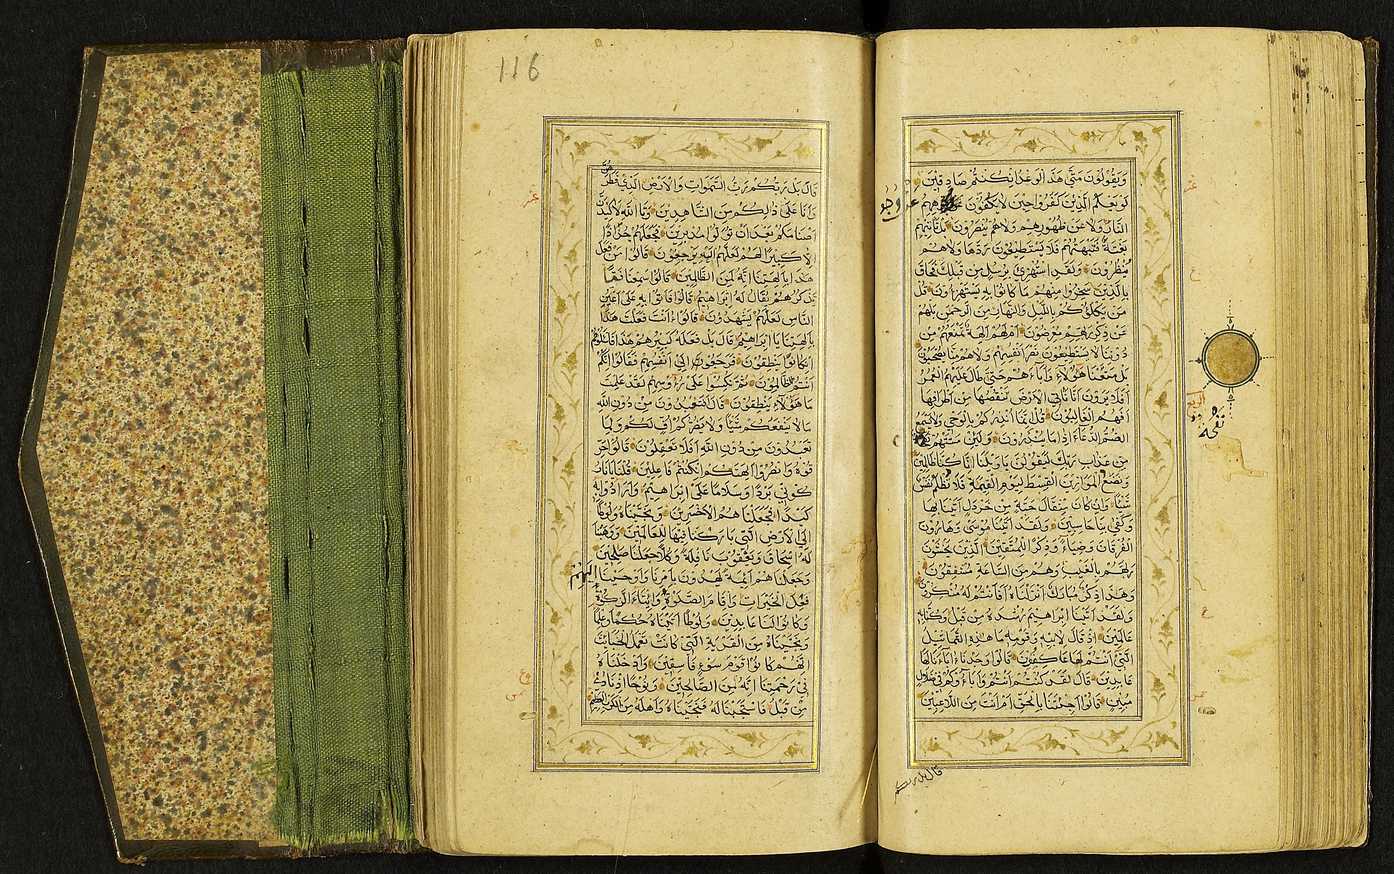 ويقولون متى هذا الوعد ان كنتم صادقين
لو يعلم الذين كفروا حين لا يكفون عن وجوههم
النار ولا عن ظهورهم ولا هم ينصرون بل تأتيهم
بغتة فتبهتهم فلا يستطيعون ردها ولا هم
ينظرون ولقد استهزئ برسل من قبلك فحاق
بالذين سخروا منهم ما كانوا به يستهزؤن قل
من يكلؤكم بالليل والنهار من الرحمن بل هم
عن ذكر ربهم معرضون ام لهم الهة تمنعهم من
دوننا لا يستطيعون نصر انفسهم ولا هم منا يصحبون
بل متعنا هؤلاء وآباءهم حتى طال عليهم العمر
افلا يرون انا نأتي الارض ننقصها من اطرافها
افهم الغالبون قل انما انذركم بالوحي ولا يسمع
الصم الدعاء اذا ما ينذرون ولئن مستهم نفحة
من عذاب ربك ليقولن يا ويلنا انا كنا ظالمين
ونضع الموازين القسط ليوم القيمة فلا تظلم نفس
شيئا وان كان مثقال حبة من خردل اتينا بها
وكفى بنا حاسبين ولقد اتينا موسى وهارون
الفرقان وضياء وذكرا للمتقين الذين يخشون
ربهم بالغيب وهم من الساعة مشفقون
وهذا ذكر مبارك انزلناه افانتم له منكرون
ولقد اتينا ابراهيم رشده من قبل وكنا به
عالمين اذ قال لابيه وقومه ما هذه التماثيل
التي انتم لها عاكفون قالوا وجدنا اباءنا لها
عابدين قال لقد كنتم انتم واباؤكم في ضلال
مبين قالوا اجئتنا بالحق ام انت من اللاعبين
قال بل ربكم
116
قال بل ربكم رب السموات والارض الذي فطرهن
وانا على ذلكم من الشاهدين وتالله لاكيدن
اصنامكم بعد ان تولوا مدبرين فجعلهم جذاذا
الا كبيرا لهم لعلهم اليه يرجعون قالوا من فعل
هذا بالهتنا انه لمن الظالمين قالوا سمعنا فتى
يذكرهم يقال له ابراهيم قالوا فأتوا به على اعين
الناس لعلهم يشهدون قالوا ءانت فعلت هذا
بالهتنا يا ابراهيم قال بل فعله كبيرهم هذا فاسئلوهم
ان كانوا ينطقون فرجعوا الى انفسهم فقالوا انكم
انتم الظالمون ثم نكسوا على رؤسهم لقد علمت
ما هؤلاء ينطقون قال افتعبدون من دون الله
ما لا ينفعكم شيئا ولا يضركم اف لكم ولما
تعبدون من دون الله افلا تعقلون قالوا حر
قوه وانصروا الهتكم ان كنتم فاعلين قلنا يا نار
كوني بردا وسلاما على ابراهيم وارادوا به
كيدا فجعلناهم الاخسرين ونجيناه ولوطا
الى الارض التي باركنا فيها للعالمين ووهبنا
له اسحاق ويعقوب نافلة وكلا جعلنا صالحين
وجعلناهم ائمة يهدون بامرنا واوحينا اليهم
فعل الخيرات واقام الصلوة وايتاء الزكوة
وكانوا لنا عابدين ولوطا اتيناه حكما وعلما
ونجيناه من القرية التي كانت تعمل الخبائث
انهم كانوا قوم سوء فاسقين وادخلناه
في رحمتنا انه من الصالحين ونوحا اذ نادى
من قبل فاستجبنا له فنجيناه واهله من الكرب العظيم